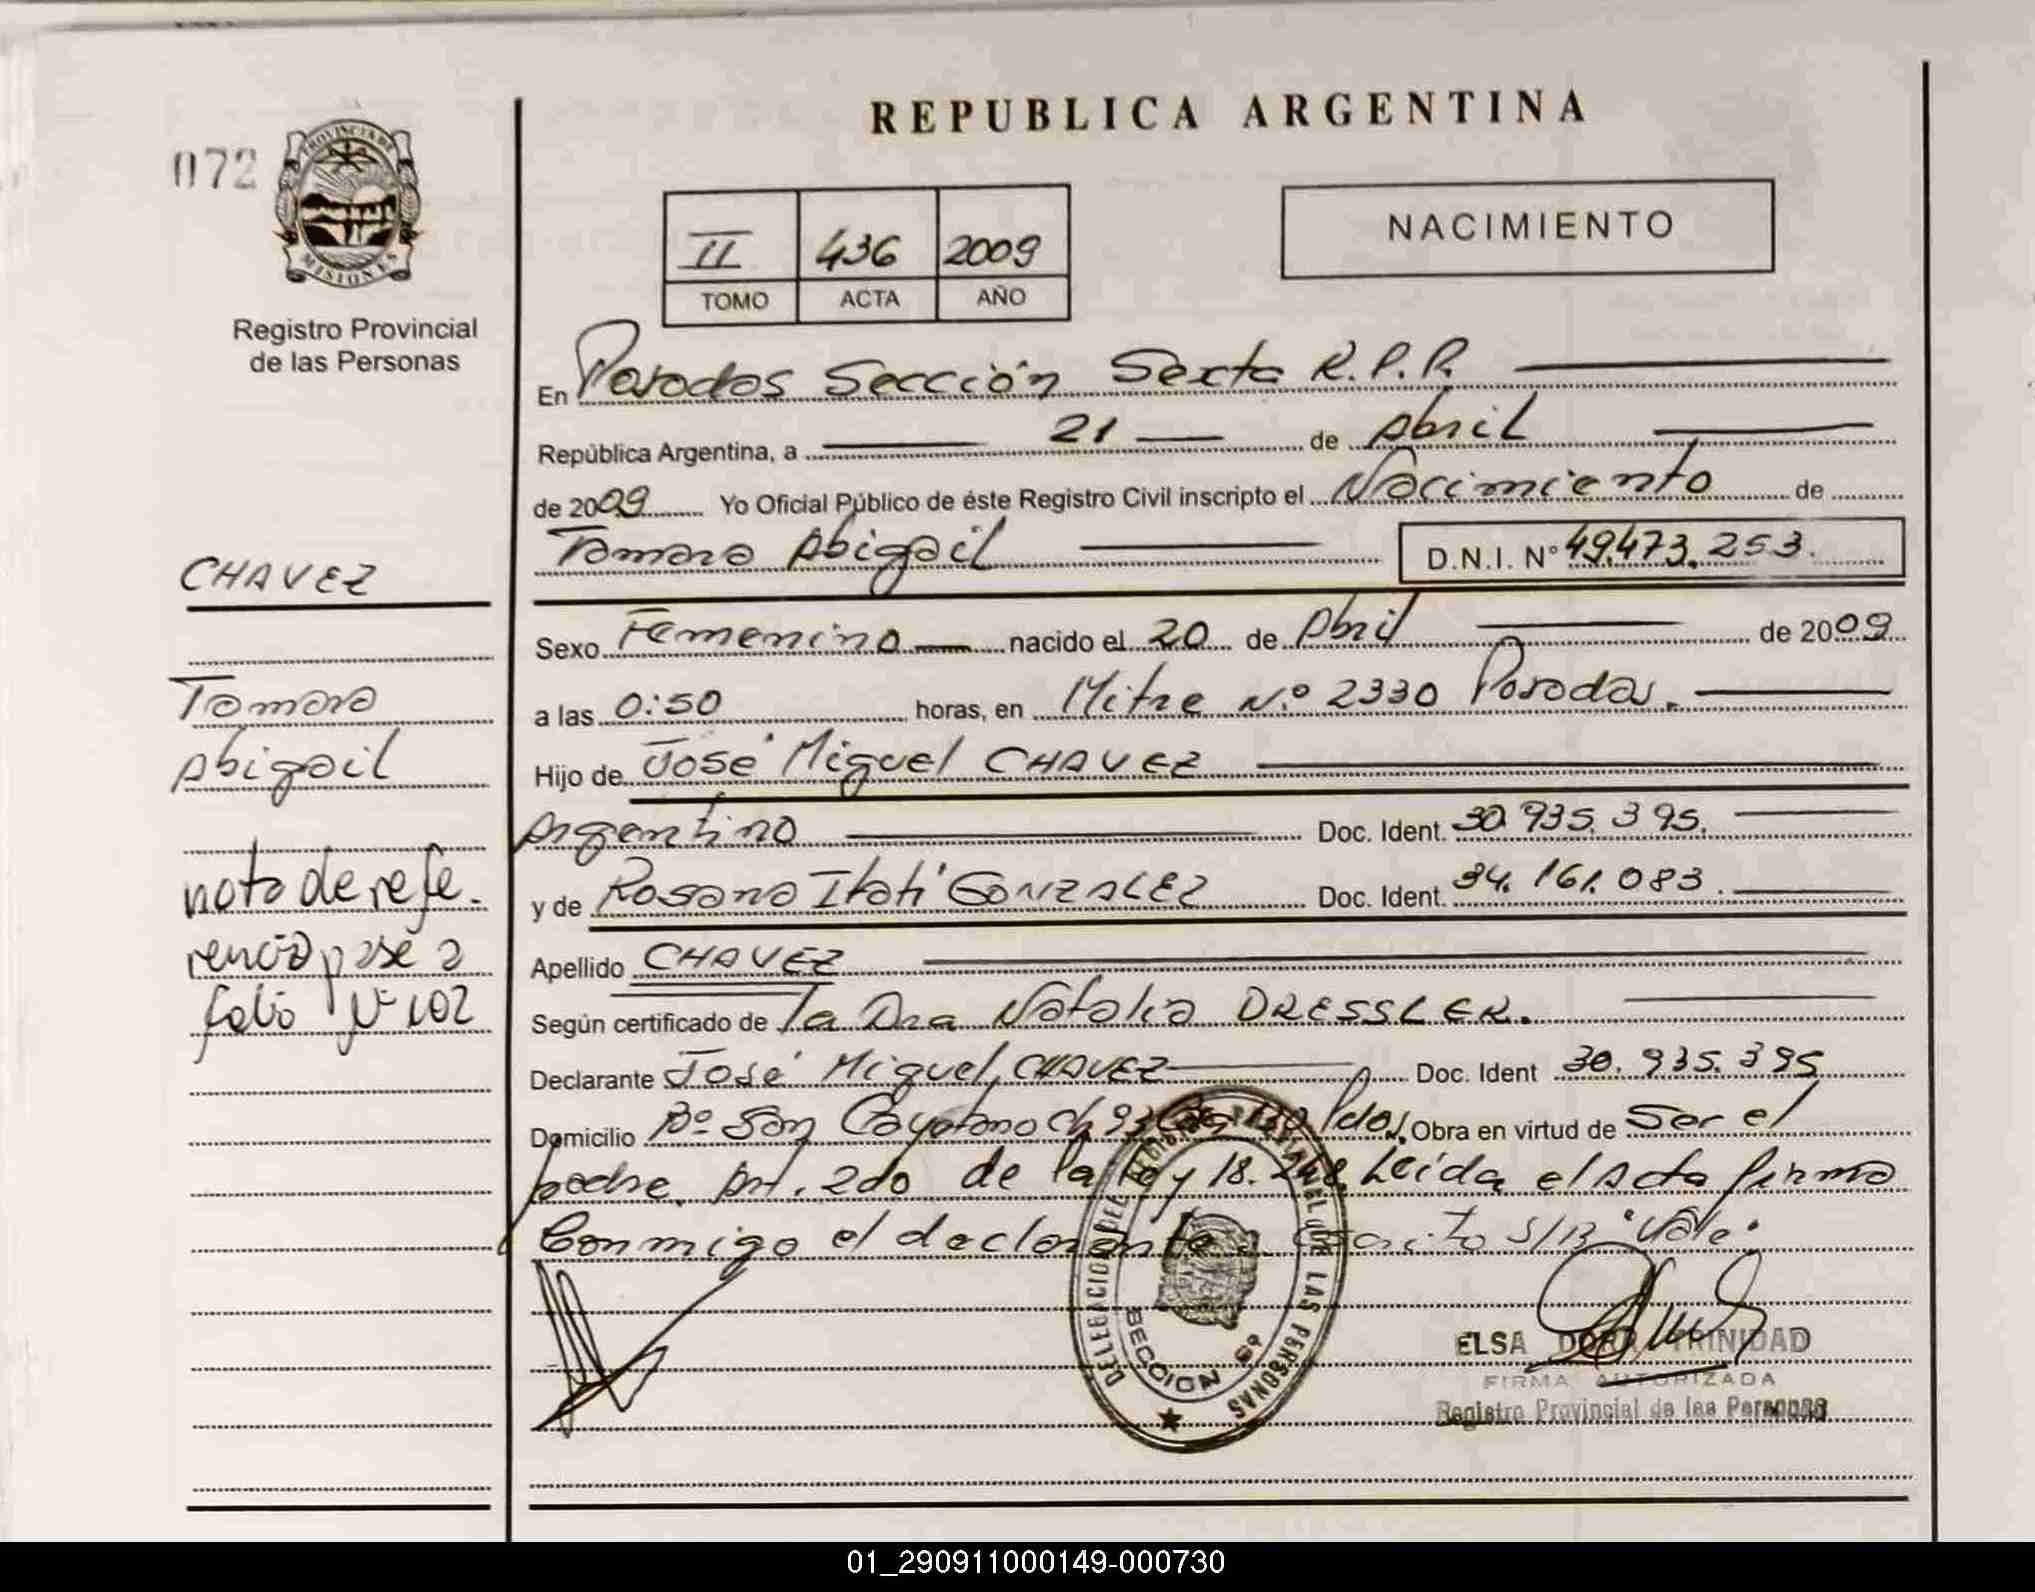 REPUBLICA ARGENTINA
072
PROVINCIA DE
MISIONES
Registro Provincial
de las Personas
II 436 2009
TOMO ACTA AÑO
NACIMIENTO
En Posadas Sección Sexta R.P.P.
República Argentina, a 21 de Abril
de 2009 Yo Oficial Público de éste Registro Civil inscripto el Nacimiento de
Tamara Abigail D.N.I. Nº 49.473.253.
CHAVEZ
Tamara
Abigail
nota de refe-
rencia pase a
folio Nº 102
Sexo Femenino nacido el 20 de Abril de 2009
a las 0:50 horas, en Mitre Nº 2330 Posadas.
Hijo de José Miguel CHAVEZ
Argentino Doc. Ident. 30.935.395.
y de Rosana Itatí GONZALEZ Doc. Ident. 34.161.083.
Apellido CHAVEZ
Según certificado de la Dra Natalia DRESSLER.
Declarante José Miguel CHAVEZ Doc. Ident 30.935.395
Domicilio Bº San Cayetano Ch 93 130 Pdas. Obra en virtud de Ser el
padre. Art. 2do de la Ley 18.248. Leída el Acta firma
Conmigo el declarante S/B "Vale"
DELEGACION DEL REGISTRO PROVINCIAL DE LAS PERSONAS
SECCION 6º
ELSA DORA TRINIDAD
FIRMA AUTORIZADA
Registro Provincial de las Personas
01_290911000149-000730